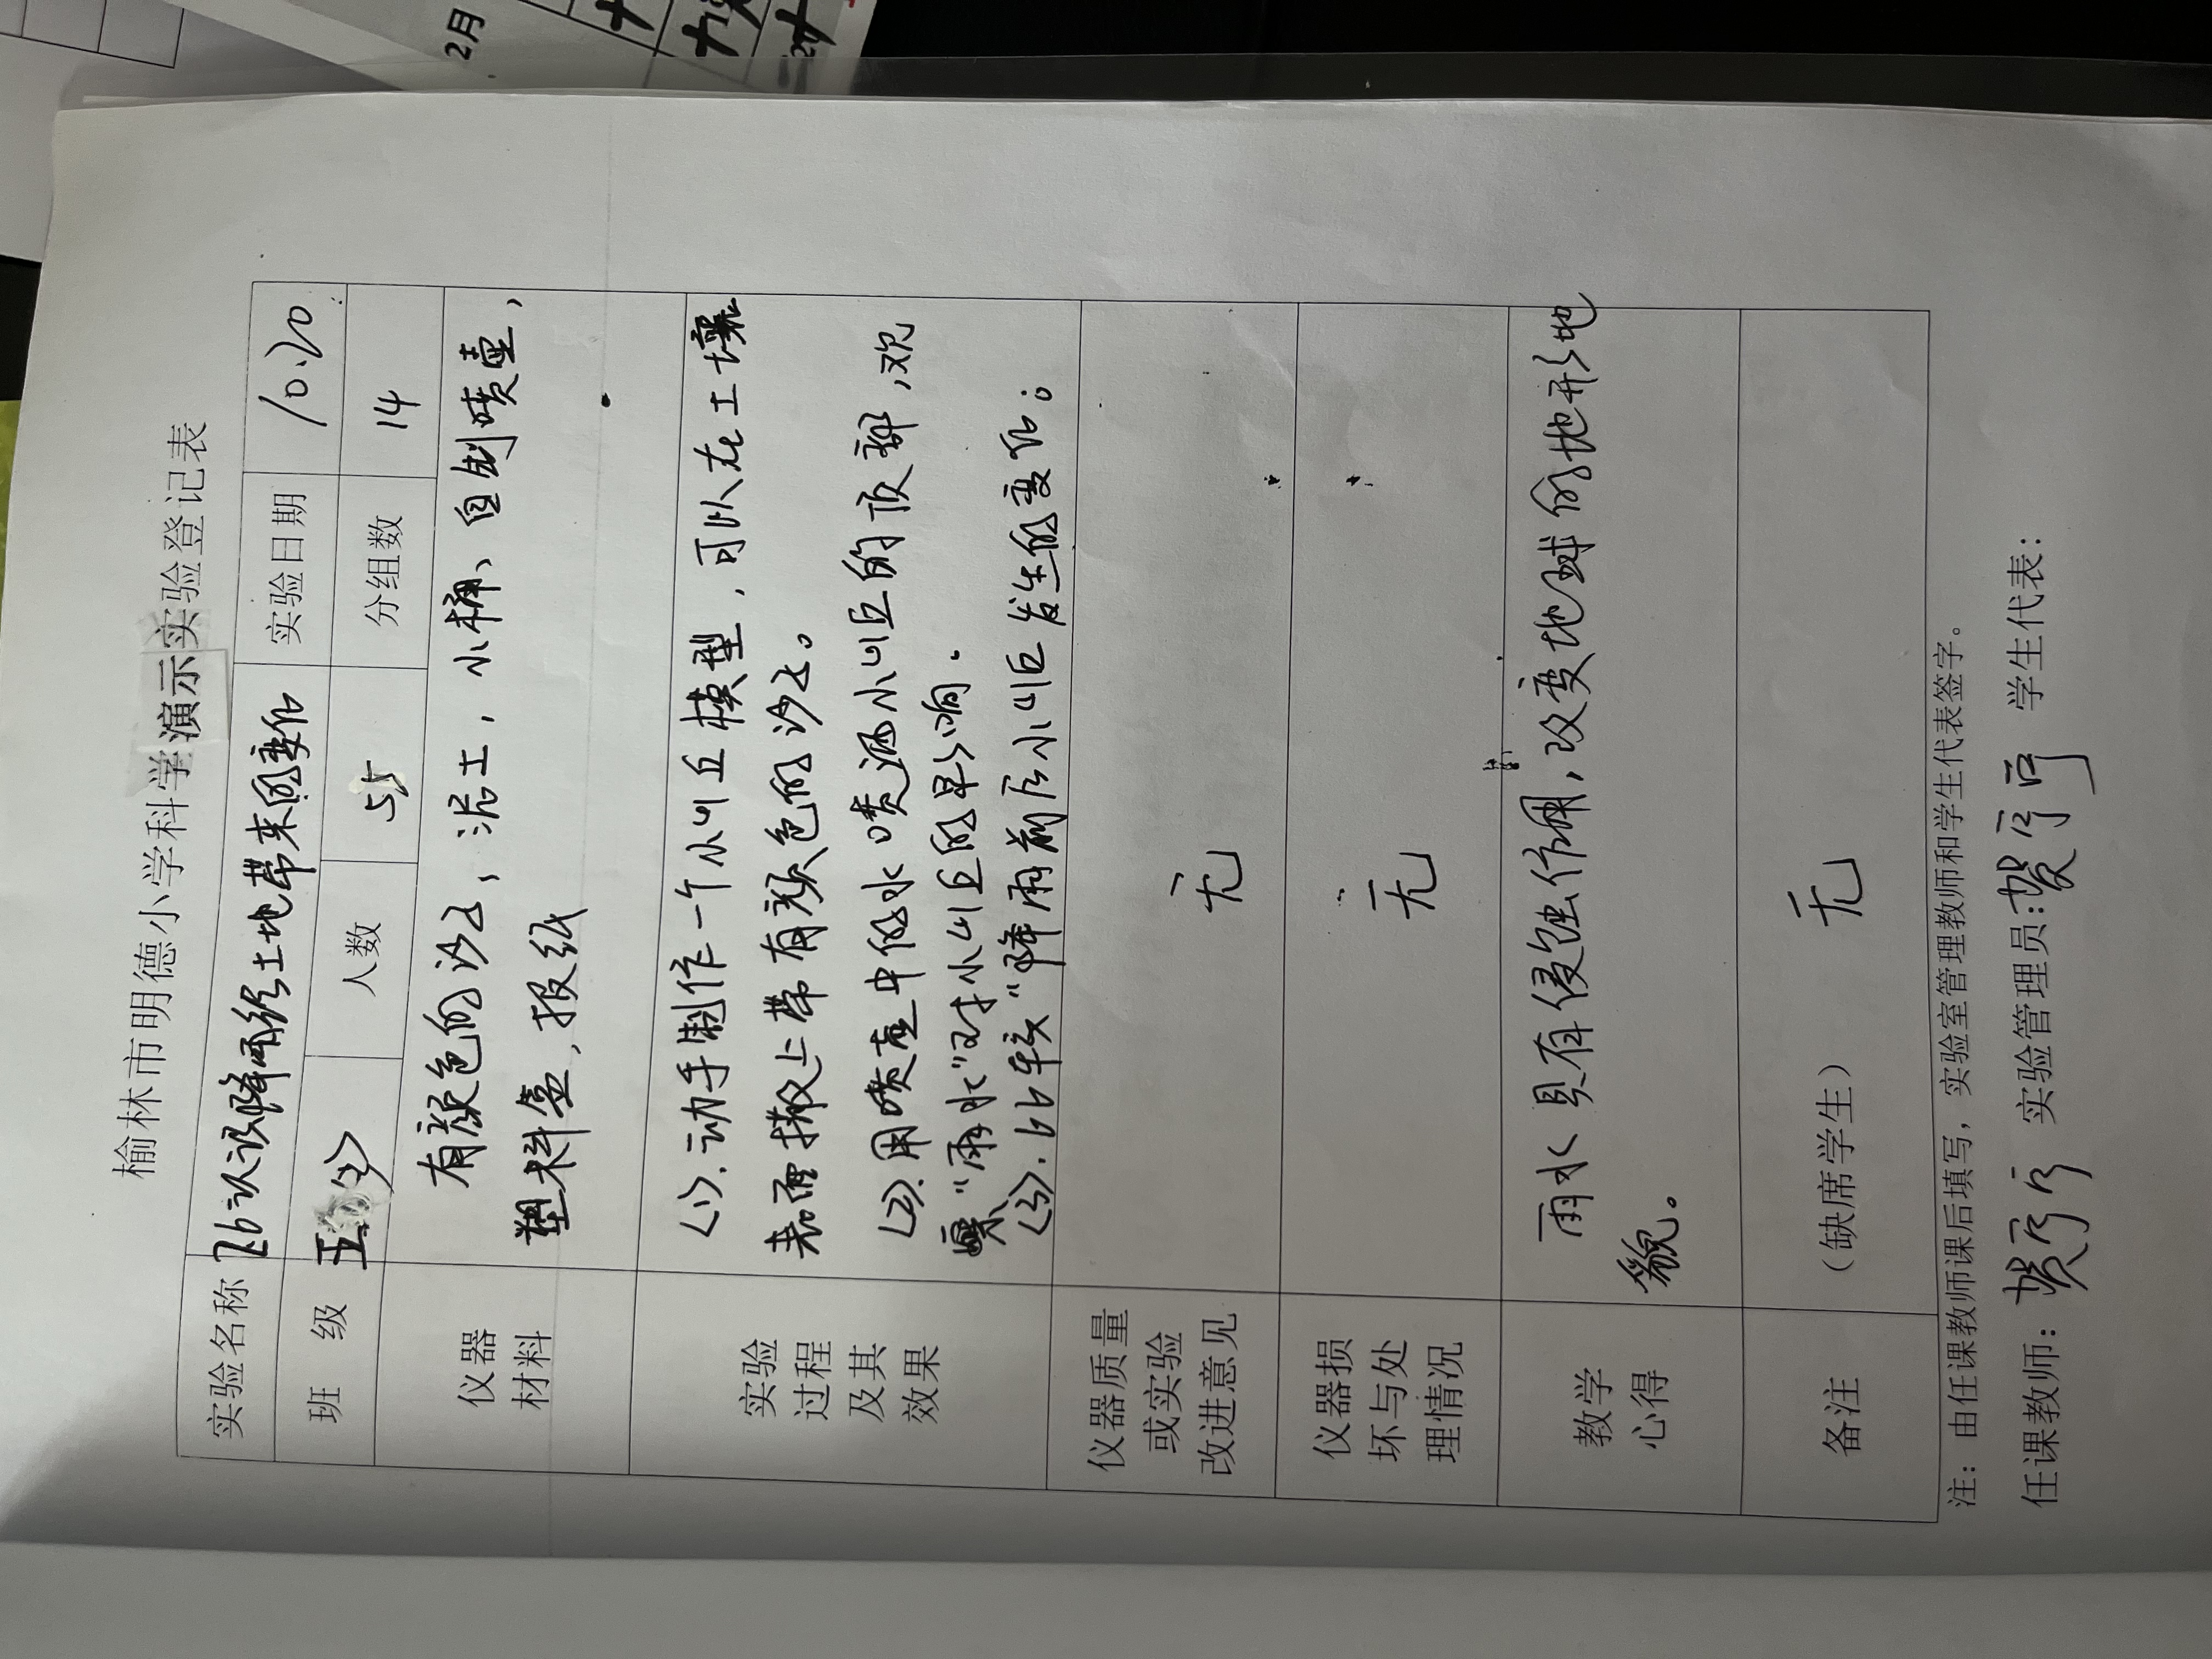 2月
榆林市明德小学科学演示实验登记表
实验名称 26认识降雨给土地带来的变化 实验日期 10.20
班 级 五(3) 人数 55 分组数 14
仪器材料 有颜色的沙子，泥土，小桶、自制喷壶，
塑料盒，报纸
实验过程及其效果 (1).动手制作一个小山丘模型，可以在土壤
表面撒上带有颜色的沙子。
(2).用喷壶中的水喷洒小山丘的顶部，观
察"雨水"对小山丘的影响.
(3).比较"降雨前后小山丘发生的变化。
仪器质量或实验改进意见 无
仪器损坏与处理情况 无
教学心得 雨水具有侵蚀作用，改变地球的地形地
貌。
备注 （缺席学生） 无
注：由任课教师课后填写，实验室管理教师和学生代表签字。
任课教师： 实验管理员: 学生代表：